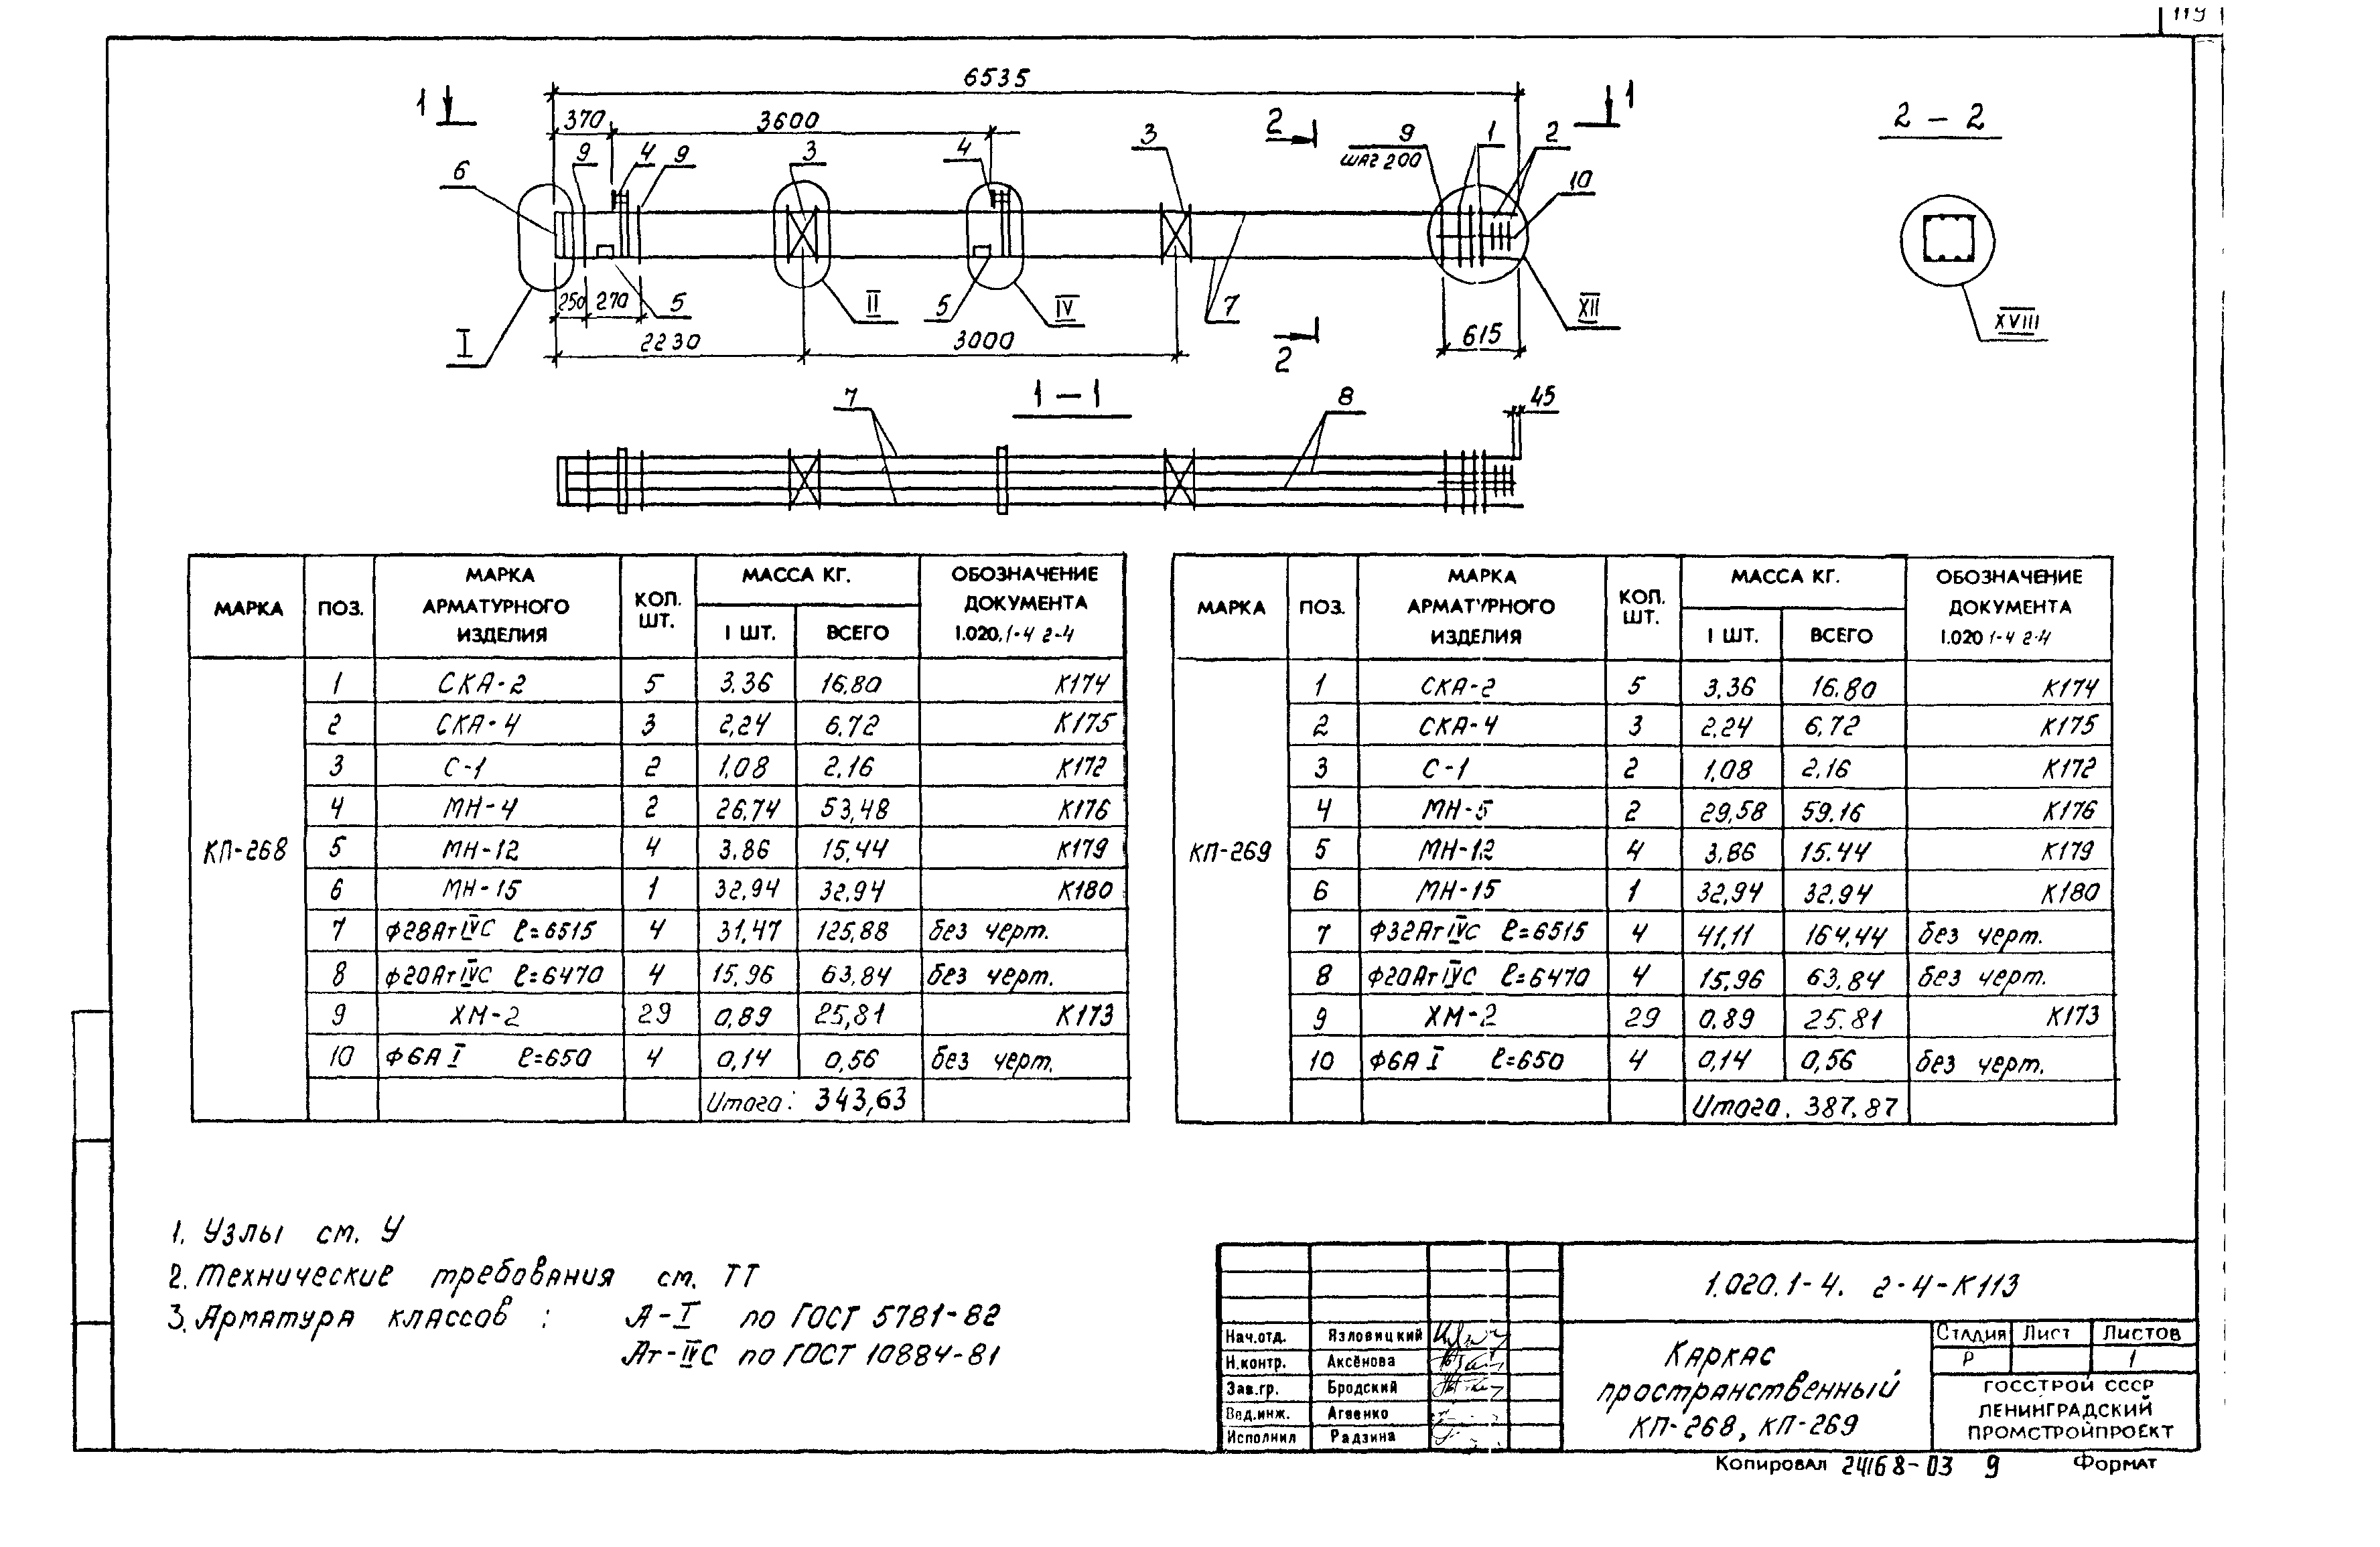 119
6535
1
1
370
3600
2
2 – 2
9
4
9
3
4
3
9
шаг 200
1
2
6
10
250
270
5
II
5
IV
7
XII
XVIII
I
2230
3000
2
615
7
1 – 1
8
45
МАРКА ПОЗ. МАРКА АРМАТУРНОГО ИЗДЕЛИЯ КОЛ. ШТ. МАССА КГ. 1 ШТ. ВСЕГО ОБОЗНАЧЕНИЕ ДОКУМЕНТА 1.020.1-4 2-4
КП-268
1 СКА-2 5 3.36 16.80 К174
2 СКА-4 3 2,24 6.72 К175
3 С-1 2 1,08 2.16 К172
4 МН-4 2 26,74 53,48 К176
5 МН-12 4 3.86 15.44 К179
6 МН-15 1 32,94 32.94 К180
7 Ф28АтIVС ℓ=6515 4 31,47 125,88 без черт.
8 Ф20АтIVС ℓ=6470 4 15,96 63,84 без черт.
9 ХМ-2 29 0,89 25,81 К173
10 Ф6АI ℓ=650 4 0,14 0,56 без черт.
Итого: 343,63
МАРКА ПОЗ. МАРКА АРМАТУРНОГО ИЗДЕЛИЯ КОЛ. ШТ. МАССА КГ. 1 ШТ. ВСЕГО ОБОЗНАЧЕНИЕ ДОКУМЕНТА 1.020 1-4 2-4
КП-269
1 СКА-2 5 3,36 16.80 К174
2 СКА-4 3 2.24 6,72 К175
3 С-1 2 1,08 2,16 К172
4 МН-5 2 29,58 59.16 К176
5 МН-12 4 3,86 15.44 К179
6 МН-15 1 32,94 32.94 К180
7 Ф32АтIVС ℓ=6515 4 41,11 164,44 без черт.
8 Ф20АтIVС ℓ=6470 4 15,96 63,84 без черт.
9 ХМ-2 29 0.89 25.81 К173
10 Ф6АI ℓ=650 4 0,14 0,56 без черт.
Итого. 387.87
1. Узлы см. У
2. Технические требования см. ТТ
3. Арматура классов : А-I по ГОСТ 5781-82
Ат-IVС по ГОСТ 10884-81
1.020.1-4. 2-4-К113
Нач.отд. Язловицкий
Н.контр. Аксёнова
Зав.гр. Бродский
Вед.инж. Агеенко
Исполнил Радзина
Каркас
пространственный
КП-268, КП-269
Стадия Лист Листов
Р 1
ГОССТРОЙ СССР
ЛЕНИНГРАДСКИЙ
ПРОМСТРОЙПРОЕКТ
Копировал 24168-03 9 Формат